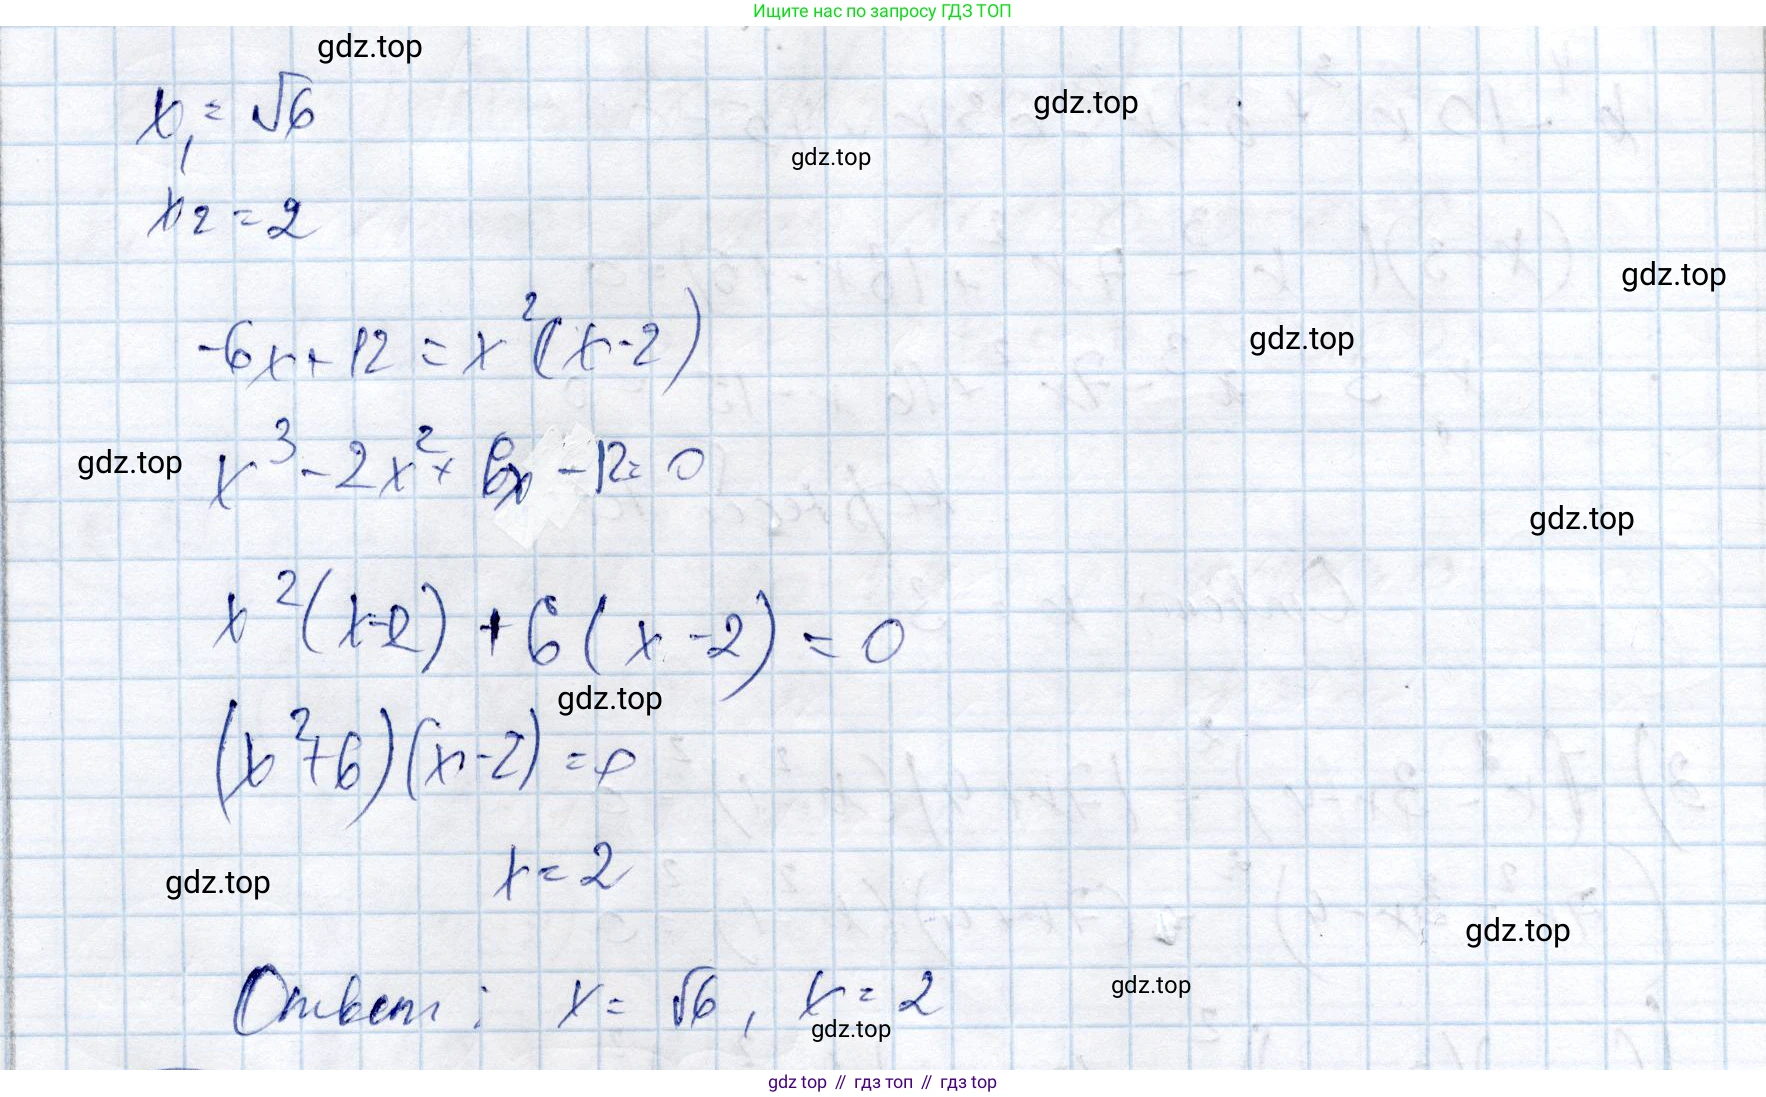 Ищите нас по запросу ГДЗ ТОП
gdz.top
x₁ = √6
gdz.top
gdz.top
x₂ = 2
gdz.top
-6x + 12 = x²(x-2)
gdz.top
gdz.top
x³ - 2x² + 6x - 12 = 0
gdz.top
x²(x-2) + 6(x-2) = 0
gdz.top
(x²+6)(x-2) = 0
x = 2
gdz.top
gdz.top
Ответ: x = √6, x = 2
gdz.top
gdz.top
gdz top // гдз топ // gdz top